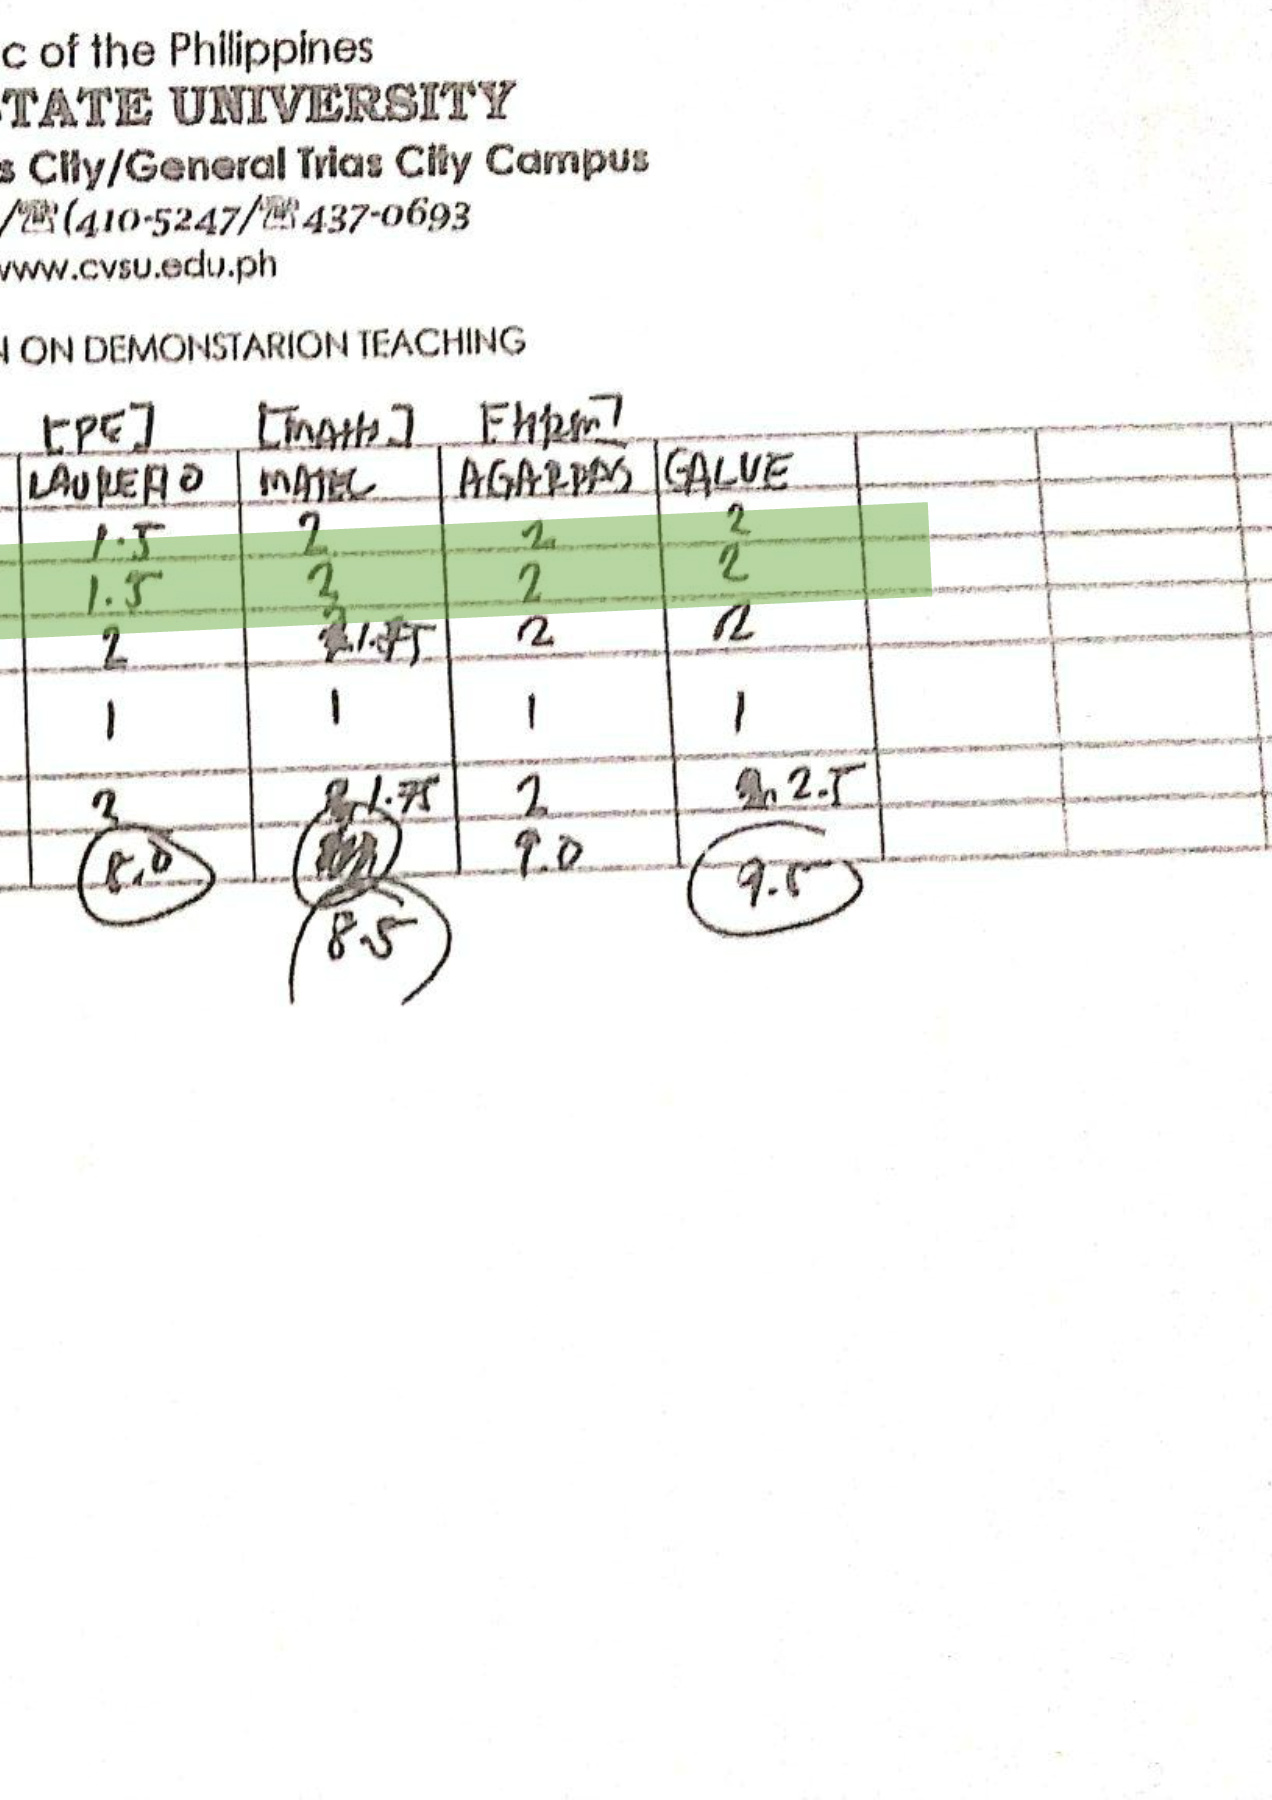 c of the Philippines
STATE UNIVERSITY
s City/General Trias City Campus
/☏(410-5247/☏437-0693
www.cvsu.edu.ph
N ON DEMONSTARION TEACHING
[PE] [MATH] [HRM]
LAURENO MATEL AGARPAS GALVE
1.5 2 2 2
1.5 2 2 2
2 1.75 2 2
1 1 1 1
2 1.75 2 2.5
8.0 9.0 9.5
8.5